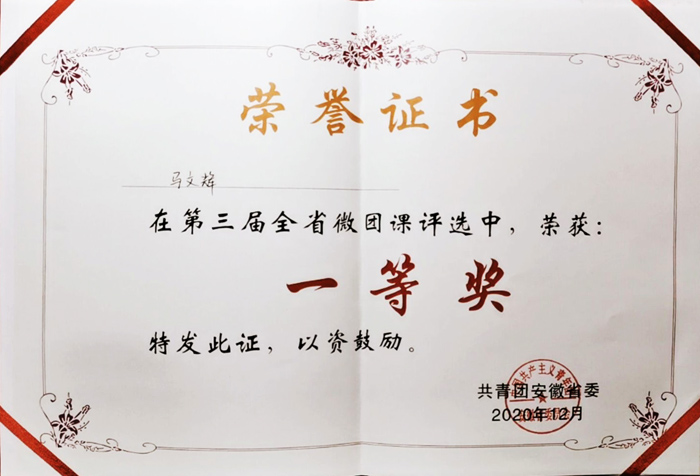 荣誉证书
马文烽
在第三届全省微团课评选中，荣获：
一等奖
特发此证，以资鼓励。
共青团安徽省委
2020年12月